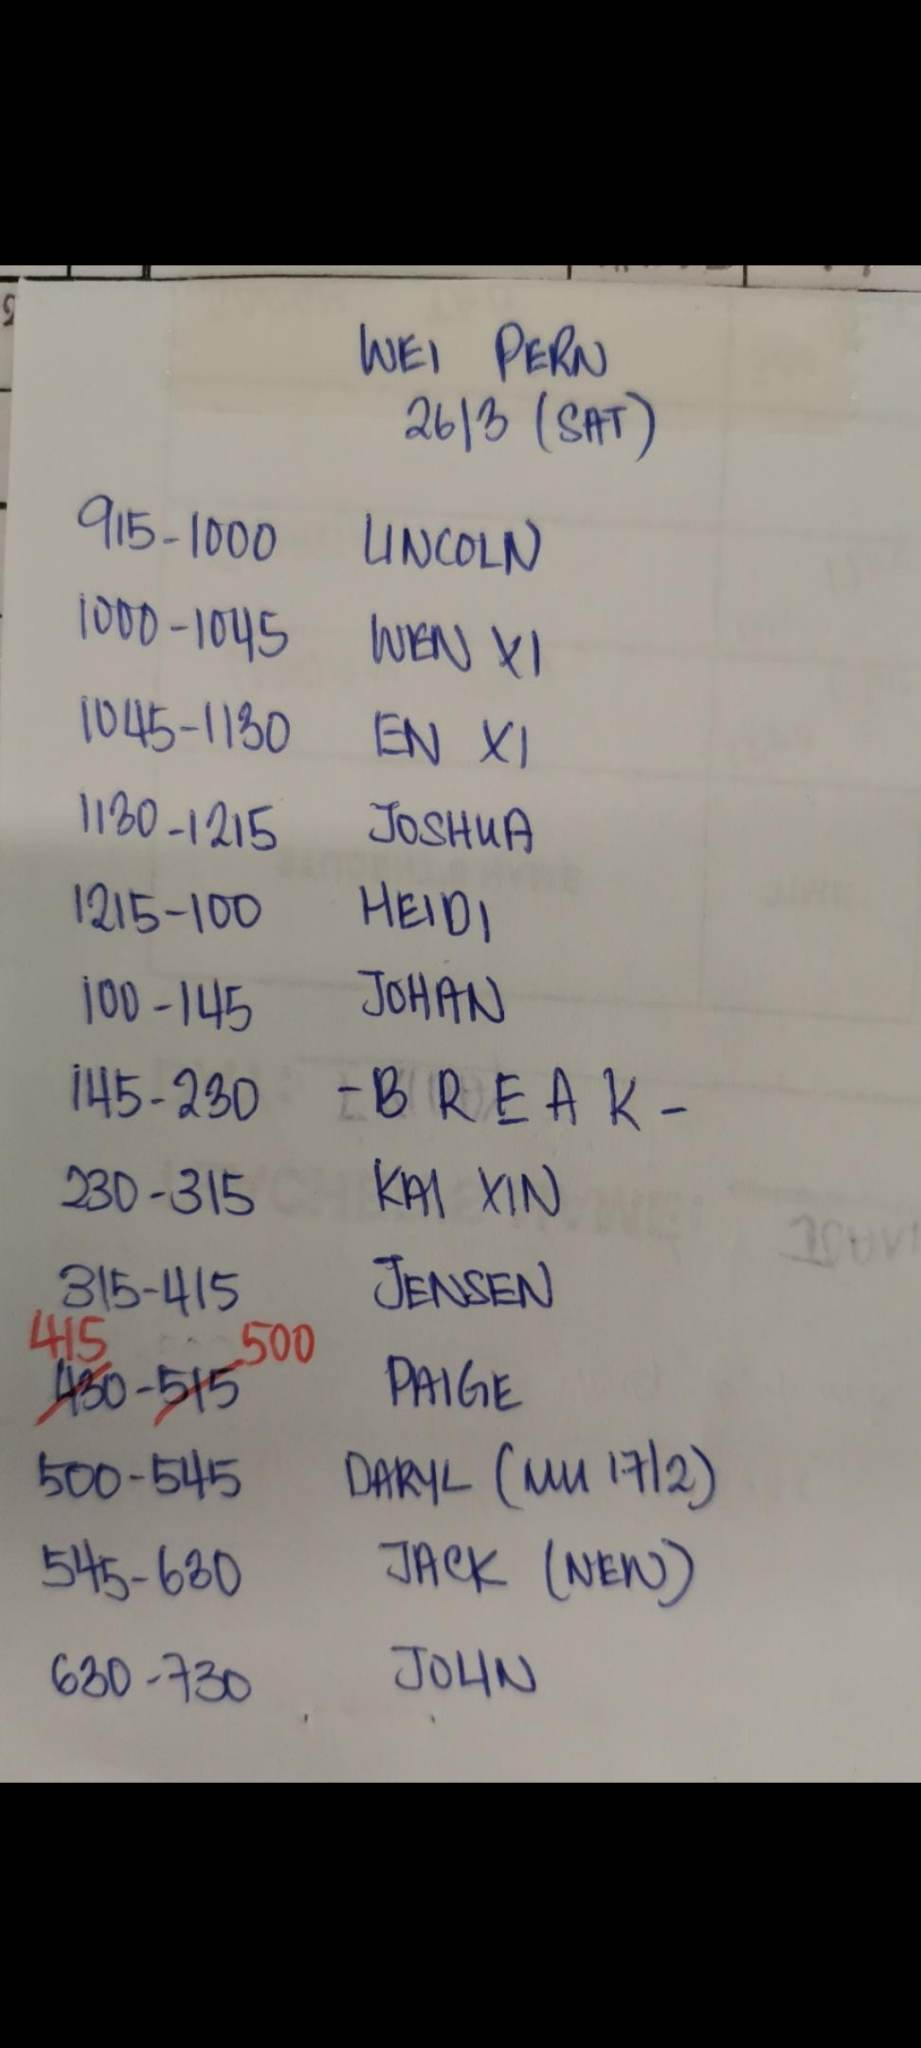 WEI PERN
26/3 (SAT)
915-1000 LINCOLN
1000-1045 WEN XI
1045-1130 EN XI
1130-1215 JOSHUA
1215-100 HEIDI
100-145 JOHAN
145-230 -BREAK-
230-315 KAI XIN
315-415 JENSEN
415 500
430-515 PAIGE
500-545 DARYL (MU 17/2)
545-630 JACK (NEW)
630-730 JOHN